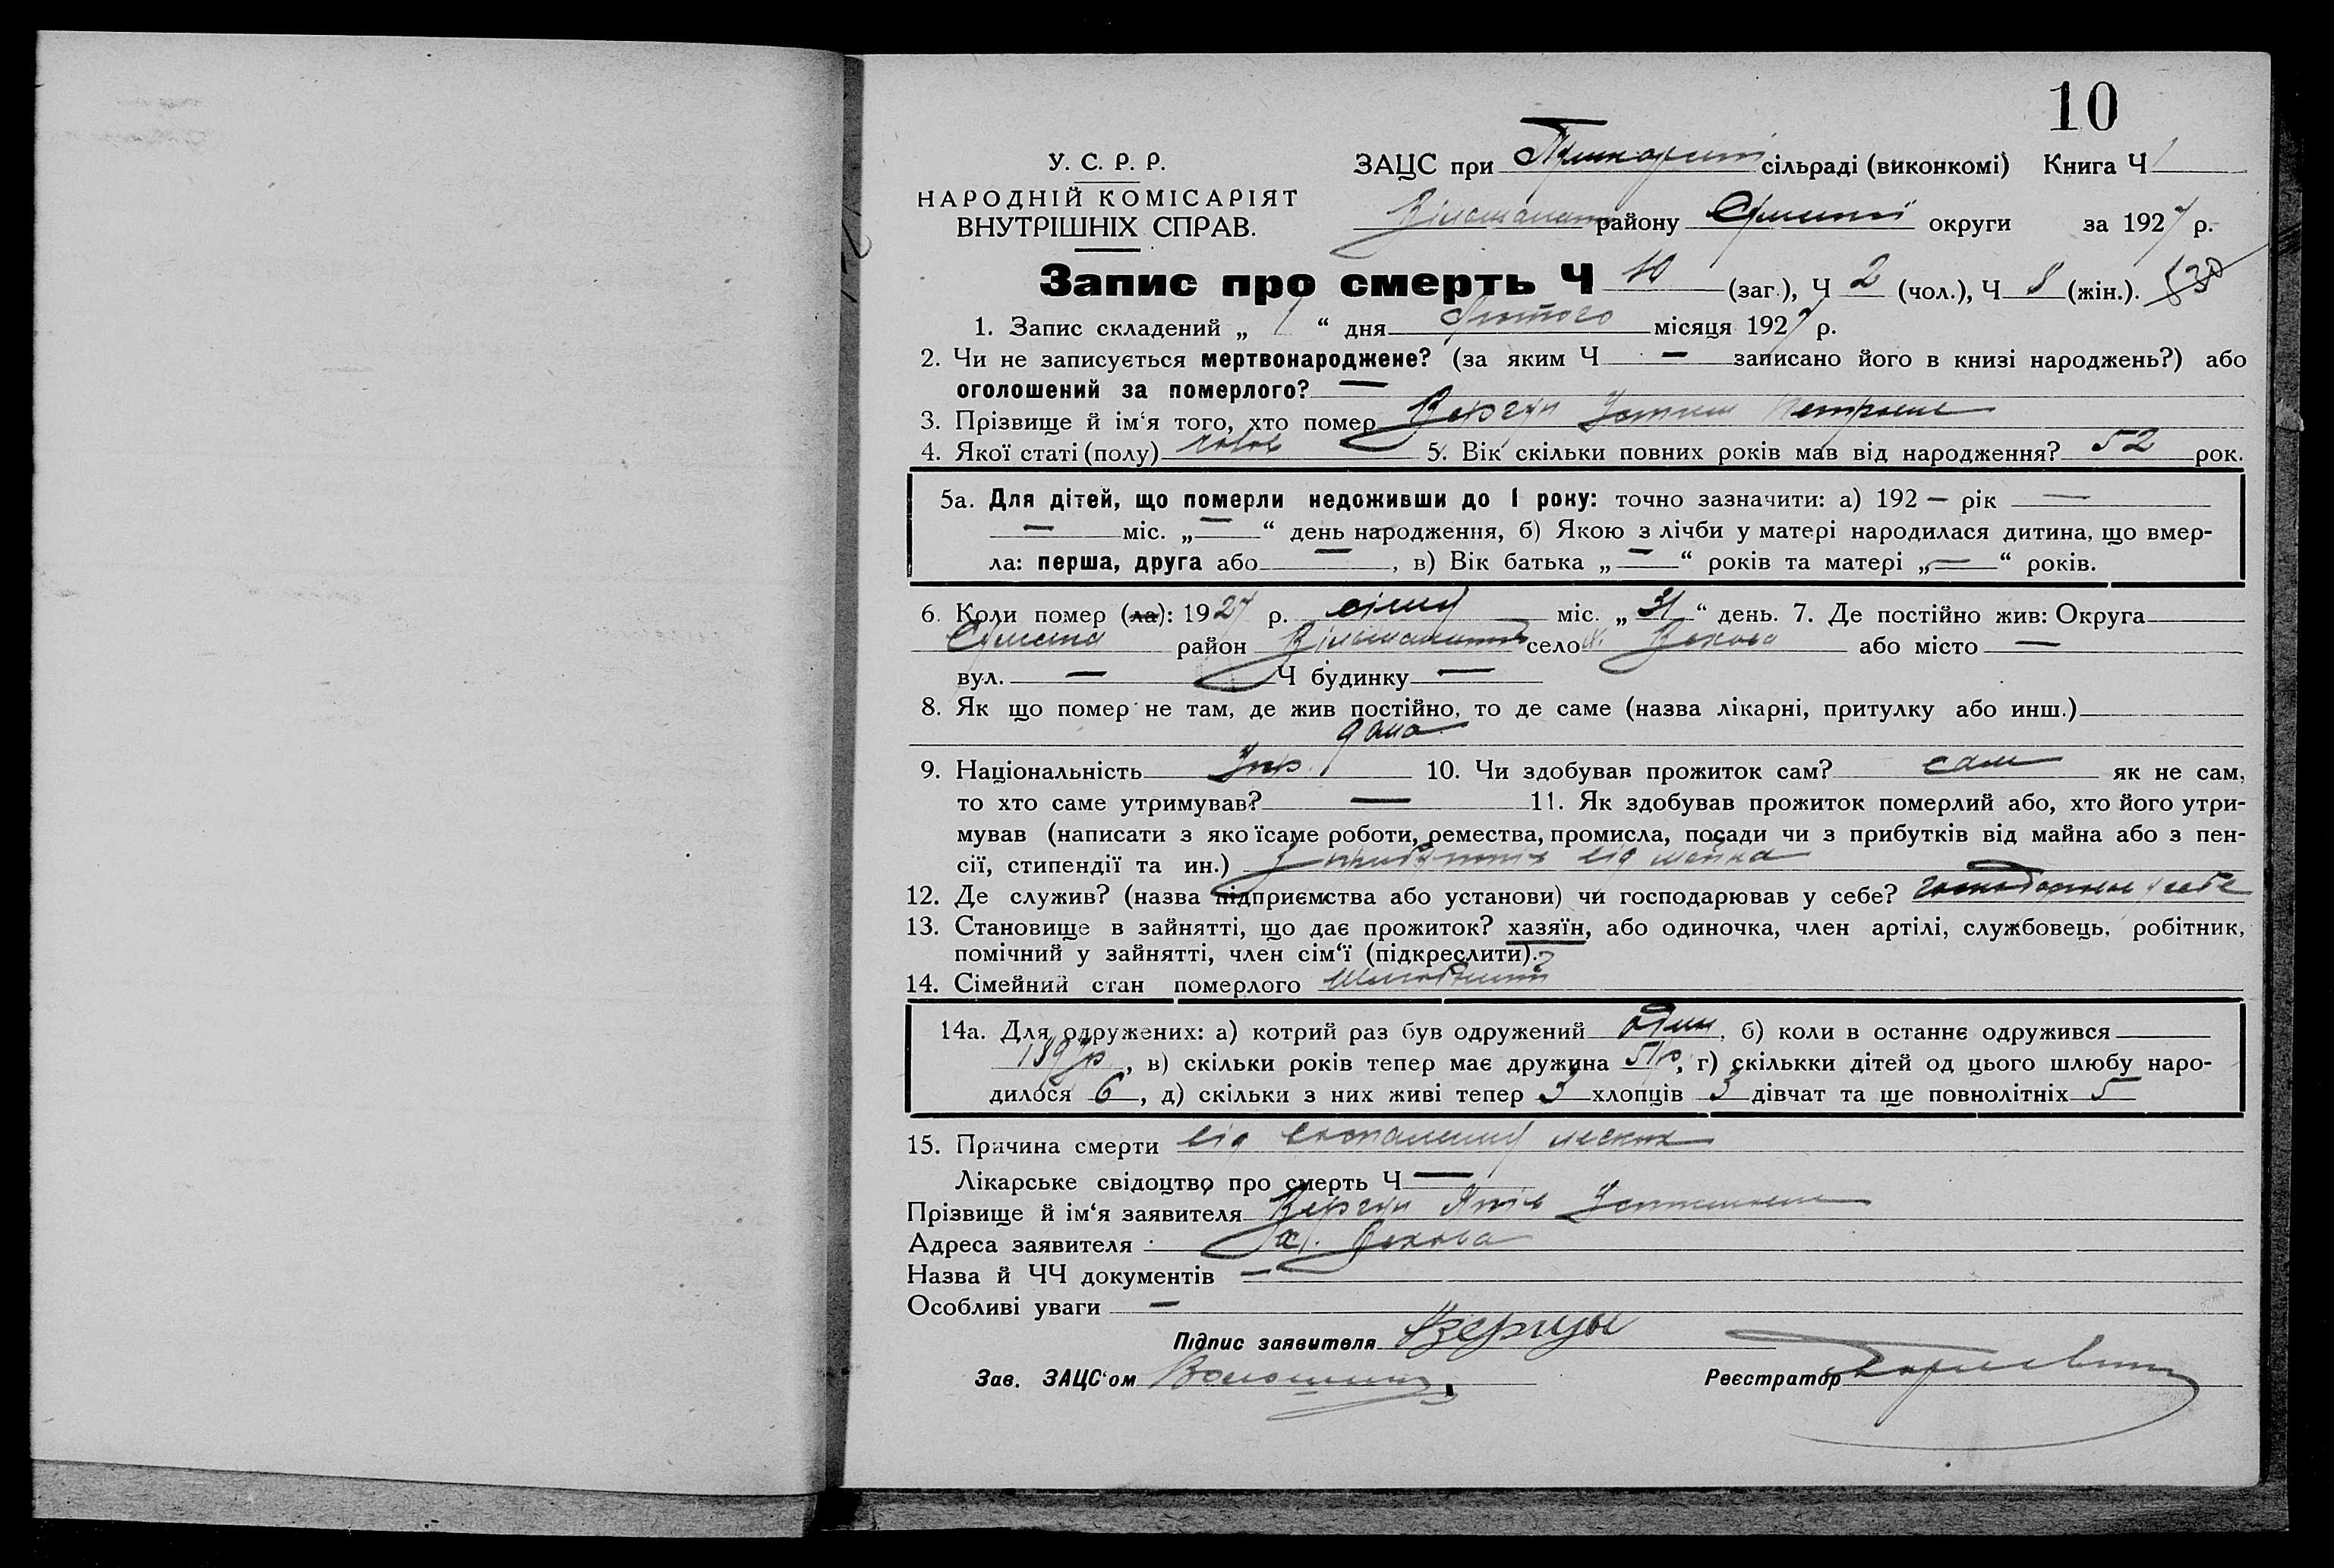 10
У. С. Р. Р.
НАРОДНІЙ КОМІСАРІЯТ
ВНУТРІШНІХ СПРАВ.
ЗАЦС при сільраді (виконкомі) Книга Ч 1
району округи за 1927 р.
Запис про смерть Ч 10 (заг.), Ч 2 (чол.), Ч 8 (жін.).
1. Запис складений „ 1 “ дня Лютого місяця 1927 р.
2. Чи не записується мертвонароджене? (за яким Ч — записано його в книзі народжень?) або
оголошений за померлого? —
3. Прізвище й ім‘я того, хто помер Вергун Устим Петрович
4. Якої статі (полу) чолов 5. Вік скільки повних років мав від народження? 52 рок.
5а. Для дітей, що померли недоживши до 1 року: точно зазначити: а) 192 — рік —
— міс. „ — “ день народження, б) Якою з лічби у матері народилася дитина, що вмер-
ла: перша, друга або — , в) Вік батька „ — “ років та матері „ — “ років.
6. Коли помер (ла): 1927 р. січня міс. „ 31 “ день. 7. Де постійно жив: Округа
Сумська район село х. або місто —
вул. — Ч будинку —
8. Як що помер не там, де жив постійно, то де саме (назва лікарні, притулку або инш.)
дома
9. Національність Укр. 10. Чи здобував прожиток сам? сам як не сам,
то хто саме утримував? — 11. Як здобував прожиток померлий або, хто його утри-
мував (написати з якоїсаме роботи, ремества, промисла, посади чи з прибутків від майна або з пен-
сії, стипендії та ин.) З прибутків від майна
12. Де служив? (назва підприємства або установи) чи господарював у себе? господарював у себе
13. Становище в зайнятті, що дає прожиток? хазяїн, або одиночка, член артілі, службовець, робітник,
помічний у зайнятті, член сім‘ї (підкреслити).
14. Сімейний стан померлого
14а. Для одружених: а) котрий раз був одружений один, б) коли в останнє одружився
1897р, в) скільки років тепер має дружина 51р, г) скількки дітей од цього шлюбу наро-
дилося 6, д) скільки з них живі тепер 3 хлопців 3 дівчат та ще повнолітніх 5
15. Причина смерти від воспаления легких
Лікарське свідоцтво про смерть Ч —
Прізвище й ім‘я заявителя Вергун Яків Устимович
Адреса заявителя х.
Назва й ЧЧ документів —
Особливі уваги —
Підпис заявителя Вергун
Зав. ЗАЦС‘ом Реєстратор